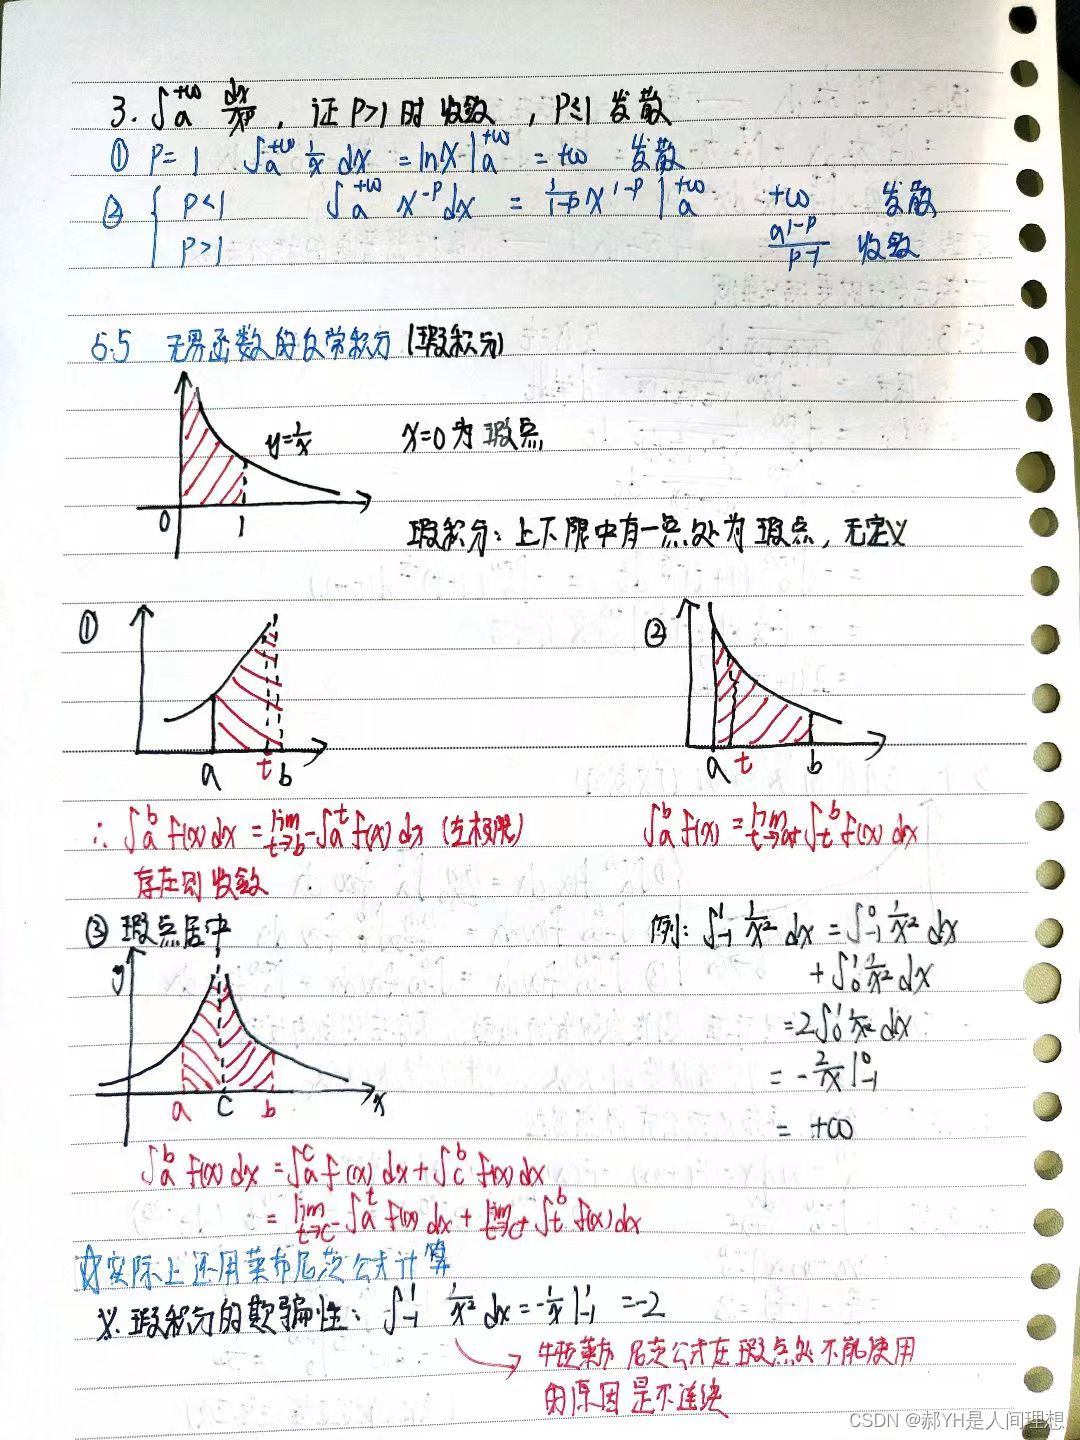 3. ∫ₐ^{+∞} dx/x^p , 证 P>1 时 收敛 , P≤1 发散
① P=1 ∫ₐ^{+∞} 1/x dx = lnx|ₐ^{+∞} = +∞ 发散
② { P<1 ∫ₐ^{+∞} x^{-p} dx = 1/(1-p) x^{1-p} |ₐ^{+∞} +∞ 发散
P>1 a^{1-p}/(p-1) 收敛
5.5 无界函数的反常积分 (瑕积分)
y=1/x
x=0 为 瑕点
0 1
瑕积分: 上下限中有一点处为 瑕点, 无定义
① ②
a t b
a t b
∴ ∫ₐ^b f(x) dx = lim_{t→b⁻} ∫ₐ^t f(x) dx (左极限)
∫ₐ^b f(x) = lim_{t→a⁺} ∫ₜ^b f(x) dx
存在则收敛
③ 瑕点居中
y
a c b x
例: ∫₋₁^1 1/x² dx = ∫₋₁^0 1/x² dx
+ ∫₀^1 1/x² dx
= 2∫₀^1 1/x² dx
= -2/x |₋₁^0
= +∞
∫ₐ^b f(x) dx = ∫ₐ^c f(x) dx + ∫_c^b f(x) dx
= lim_{t→c⁻} ∫ₐ^t f(x) dx + lim_{t→c⁺} ∫ₜ^b f(x) dx
☆实际上还用莱布尼茨公式计算
※. 瑕积分的欺骗性: ∫₋₁^1 1/x² dx = -1/x |₋₁^1 = -2
牛顿莱布尼茨公式在瑕点处不能使用
的原因是不连续
CSDN @郝YH是人间理想